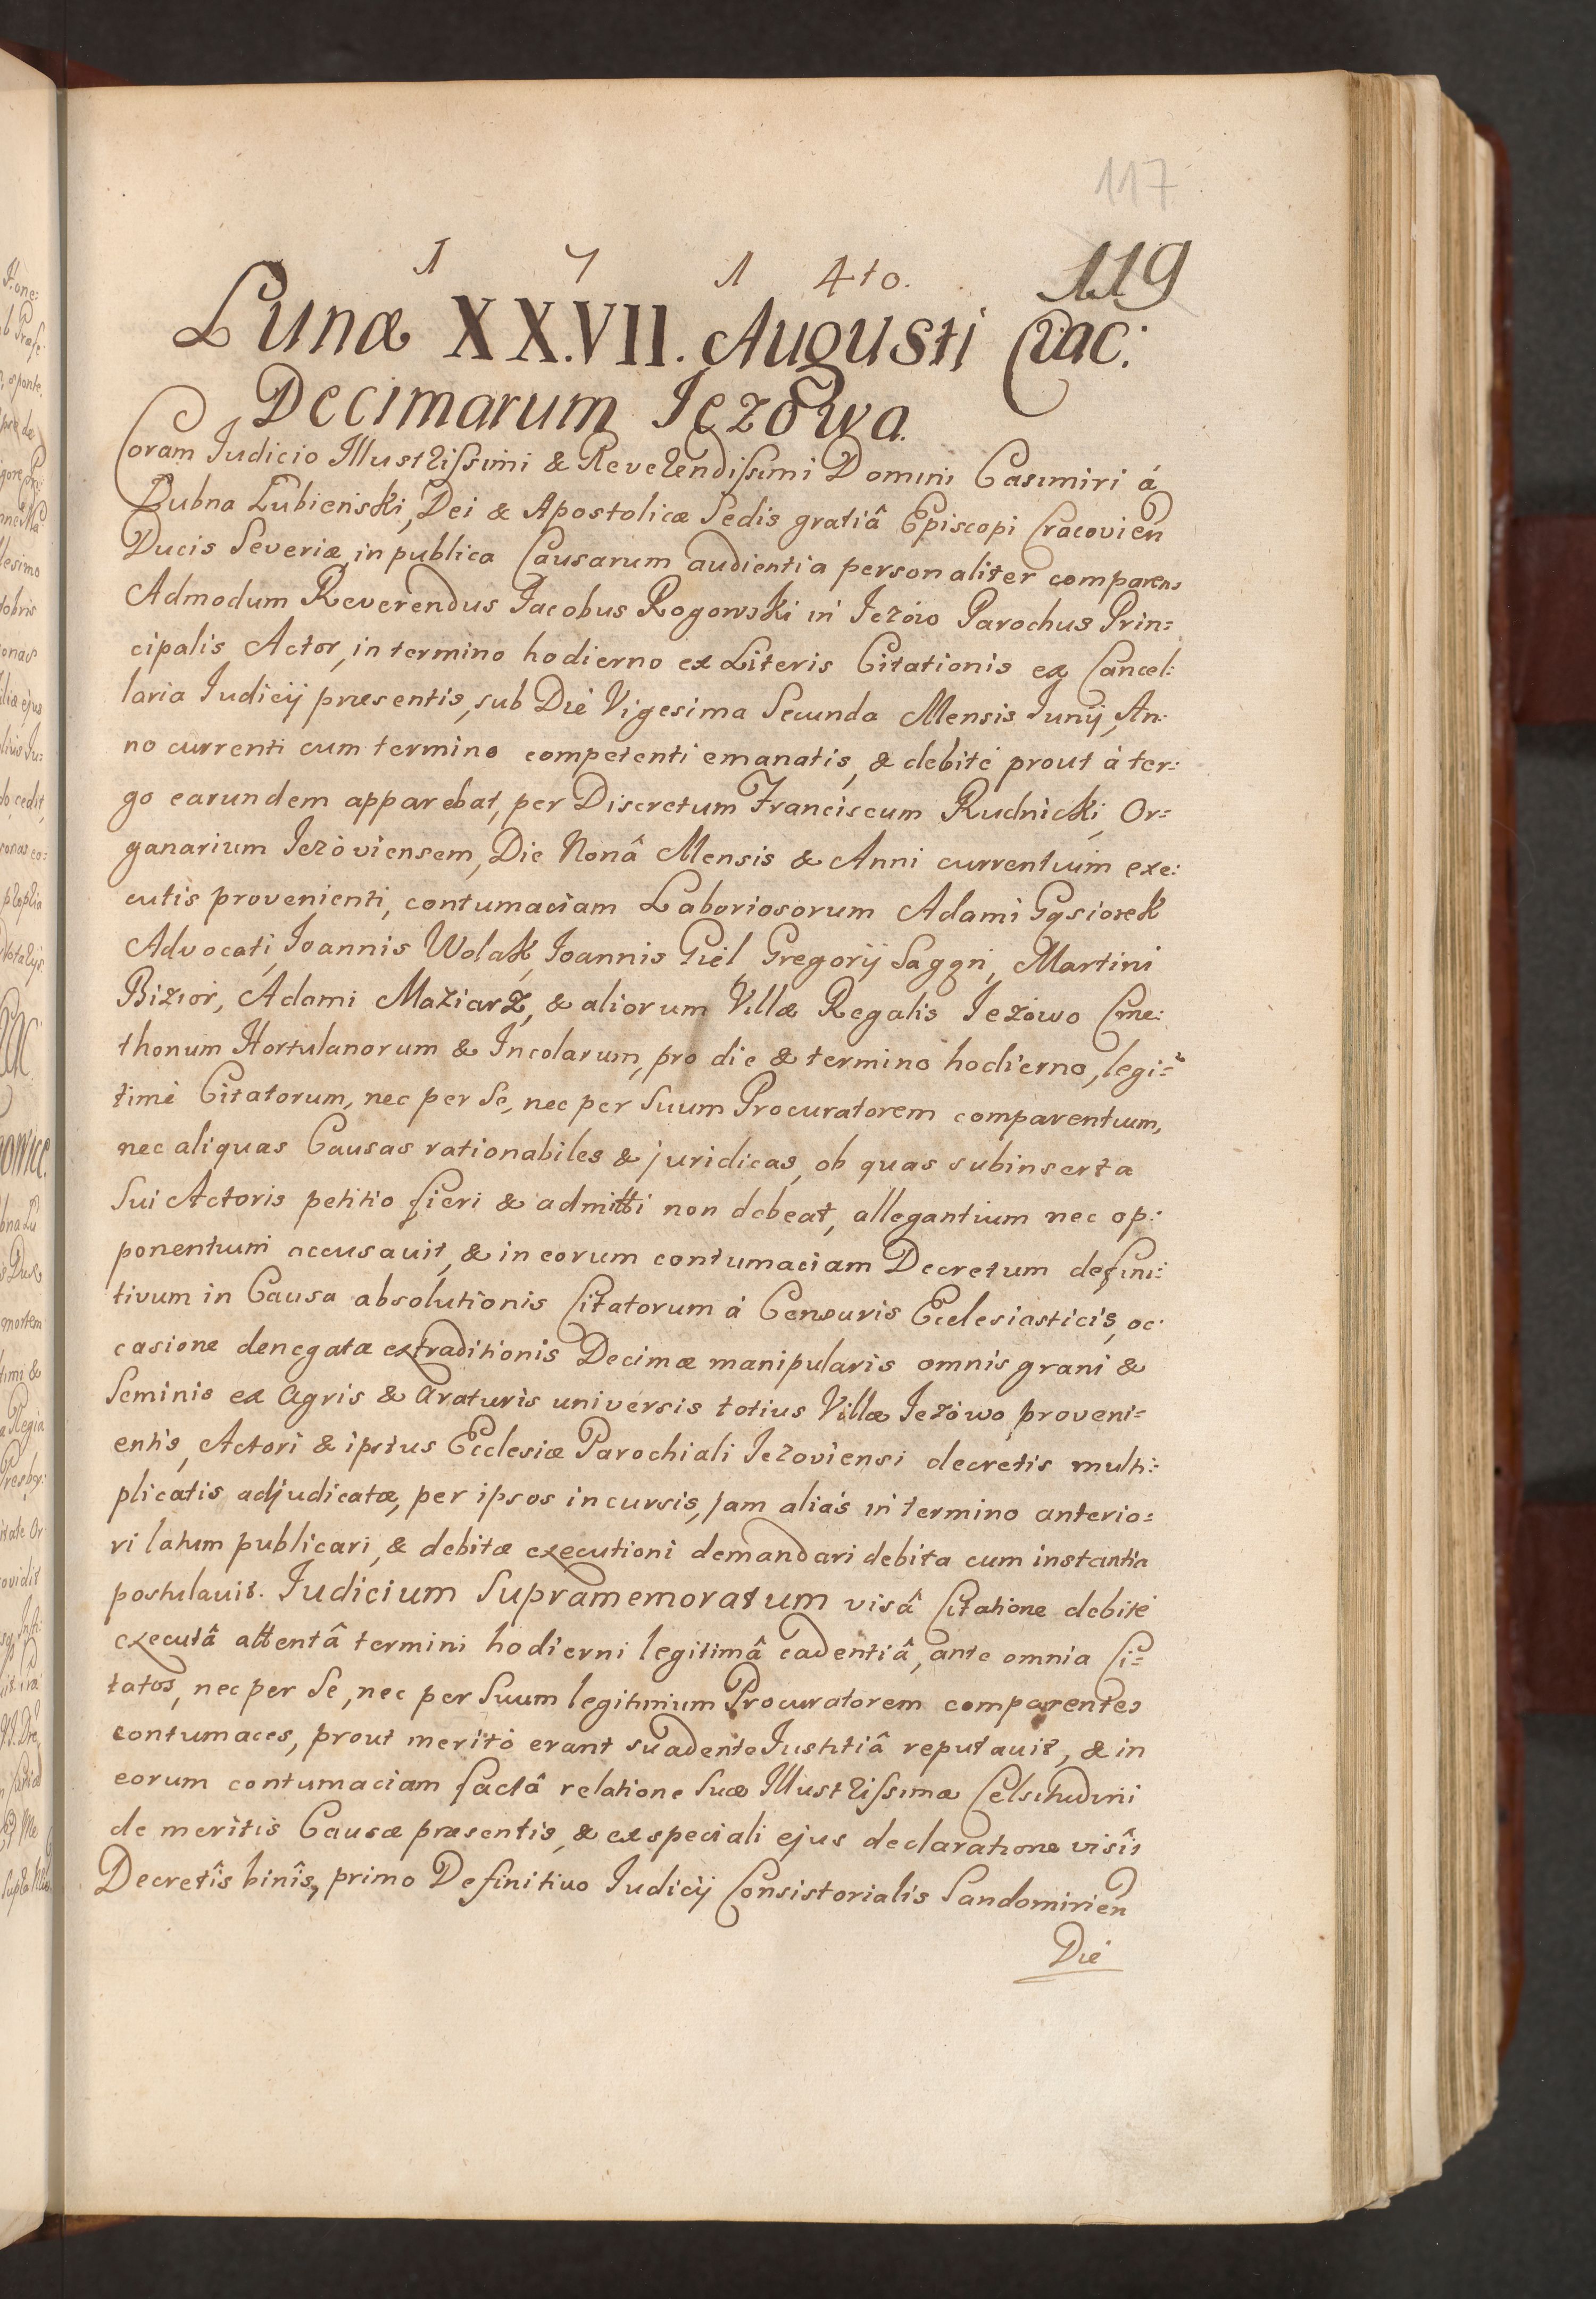 117
1 7 1 4to. 119
Lunæ XX.VII. Augusti Crac:
Decimarum Iezowa.
Coram Iudicio Illustrissimi & Reverendissimi Domini Casimiri á
Łubna Łubieński, Dei & Apostolicæ Sedis gratiâ Episcopi Cracovien
Ducis Severiæ, in publica Causarum audientia personaliter comparens
Admodum Reverendus Iacobus Rogowski in Ieżów Parochus Prin=
cipalis Actor, in termino hodierno ex Literis Citationis ex Cancel:
laria Iudicij præsentis, sub Die Vigesima Secunda Mensis Iunij, An:
no currenti cum termino competenti emanatis, & debité prout á ter:
go earundem apparebat, per Discretum Franciscum Rudnicki, Or=
ganarium Ieżoviensem, Die Nonâ Mensis & Anni currentium exe:
cutis provenienti, contumaciam Laboriosorum Adami Gąsiorek
Advocati, Ioannis Wolak, Ioannis Giel Gregorij Sagan, Martini
Bizior, Adami Maziarz, & aliorum Villæ Regalis Ieżowo Cme:
thonum Hortulanorum & Incolarum, pro die & termino hodierno, legi=
timé Citatorum, nec per Se, nec per Suum Procuratorem comparentium,
nec aliquas Causas rationabiles & juridicas, ob quas subinserta
Sui Actoris petitio fieri & admitti non debeat, allegantium nec op:
ponentium accusavit, & in eorum contumaciam Decretum defini:
tivum in Causa absolutionis Citatorum á Censuris Ecclesiasticis, oc:
casione denegatæ extraditionis Decimæ manipularis omnis grani &
Seminis ex Agris & Araturis universis totius Villæ Ieżowo proveni=
entis, Actori & ipsius Ecclesiæ Parochiali Iezoviensi decretis multi:
plicatis adjudicatæ, per ipsos incursis, jam aliás in termino anterio=
ri latum publicari, & debitæ executioni demandari debita cum instantia
postulavit. Iudicium Supramemoratum visâ Citatione debité
executâ attentâ termini hodierni legitimâ cadentiâ, ante omnia Ci=
tatos, nec per Se, nec per Suum legitimum Procuratorem comparentes
contumaces, prout meritó erant suadente Iustitiâ reputavit, & in
eorum contumaciam factâ relatione Suæ Illustrissimæ Celsitudini
de meritis Causæ præsentis, & ex speciali ejus declaratione visîs
Decretîs binîs, primo Definitivo Iudicij Consistorialis Sandomirien
Die